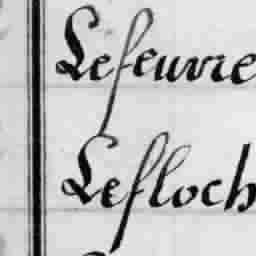 Lefeuvre
Lefloch